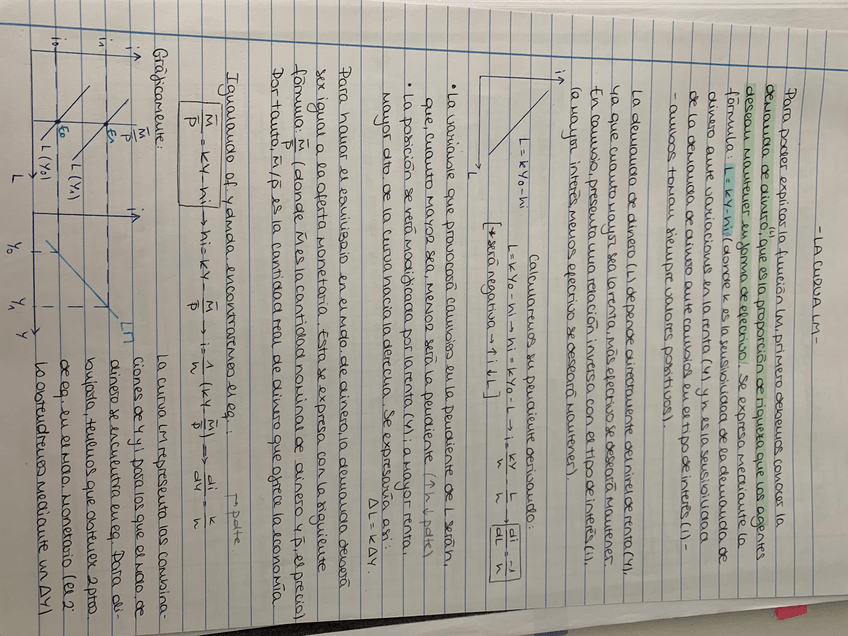 - LA CURVA LM -
Para poder explicar la función LM, primero debemos conocer la
demanda de dinero, "que es la proporción de riqueza que los agentes
desean mantener en forma de efectivo". Se expresa mediante la
fórmula: L = kY - hi (donde k es la sensibilidad de la demanda de
dinero ante variaciones en la renta (Y) y h es la sensibilidad
de la demanda de dinero ante cambios en el tipo de interés (i) -
- ambos toman siempre valores positivos).
La demanda de dinero (L) depende directamente del nivel de renta (Y),
ya que cuanto mayor sea la renta, más efectivo se deseará mantener.
En cambio, presenta una relación inversa con el tipo de interés (i),
(a mayor interés menos efectivo se deseará mantener).
i
L = kY₀ - hi
L
Calcularemos su pendiente derivando:
L = kY₀ - hi → hi = kY₀ - L → i = kY/h - L/h → di/dL = -1/h
[* será negativa → ↑i ↓L]
• La variable que provocará cambios en la pendiente de L será h,
que, cuanto mayor sea, menor será la pendiente (↑h ↓pdte)
• La posición se verá modificada por la renta (Y); a mayor renta,
mayor dto. de la curva hacia la derecha. Se expresaría así:
ΔL = kΔY.
Para hallar el equilibrio en el mdo. de dinero, la demanda deberá
ser igual a la oferta monetaria. Esta se expresa con la siguiente
fórmula: M̅/P̅ (donde M̅ es la cantidad nominal de dinero y P̅, el precio)
Por tanto, M̅/P̅ es la cantidad real de dinero que ofrece la economía.
Igualando of. y dmda. encontraremos el eq.:
M̅/P̅ = kY - hi → hi = kY - M̅/P̅ → i = 1/h (kY - M̅/P̅) ⇒ di/dY = k/h
→ pdte
Gráficamente:
i
M̅/P̅
i
i₁
E₁
LM
i₀
E₀
L (Y₁)
L (Y₀)
L
Y₀
Y₁
Y
La curva LM representa las combina-
ciones de Y y i para los que el mdo. de
dinero se encuentra en eq. Para di-
bujarla, tenemos que obtener 2 ptos.
de eq. en el mdo. monetario (el 2º
lo obtendremos mediante un ΔY)